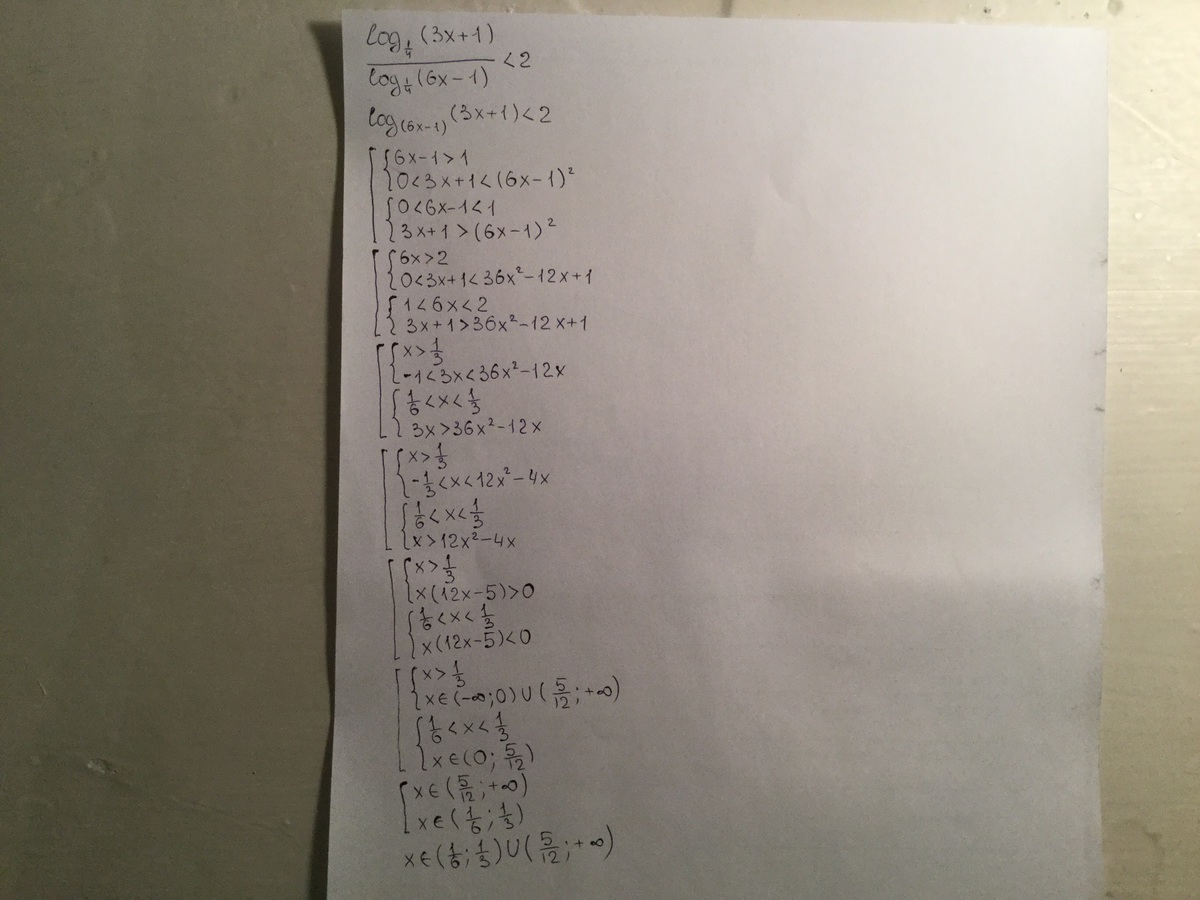 log_{1/4}(3x+1) / log_{1/4}(6x-1) < 2
log_{(6x-1)}(3x+1)<2
6x-1>1
0<3x+1<(6x-1)²
0<6x-1<1
3x+1>(6x-1)²
6x>2
0<3x+1<36x²-12x+1
1<6x<2
3x+1>36x²-12x+1
x>1/3
-1<3x<36x²-12x
1/6<x<1/3
3x>36x²-12x
x>1/3
-1/3<x<12x²-4x
1/6<x<1/3
x>12x²-4x
x>1/3
x(12x-5)>0
1/6<x<1/3
x(12x-5)<0
x>1/3
x∈(-∞;0)∪(5/12;+∞)
1/6<x<1/3
x∈(0;5/12)
x∈(5/12;+∞)
x∈(1/6;1/3)
x∈(1/6;1/3)∪(5/12;+∞)